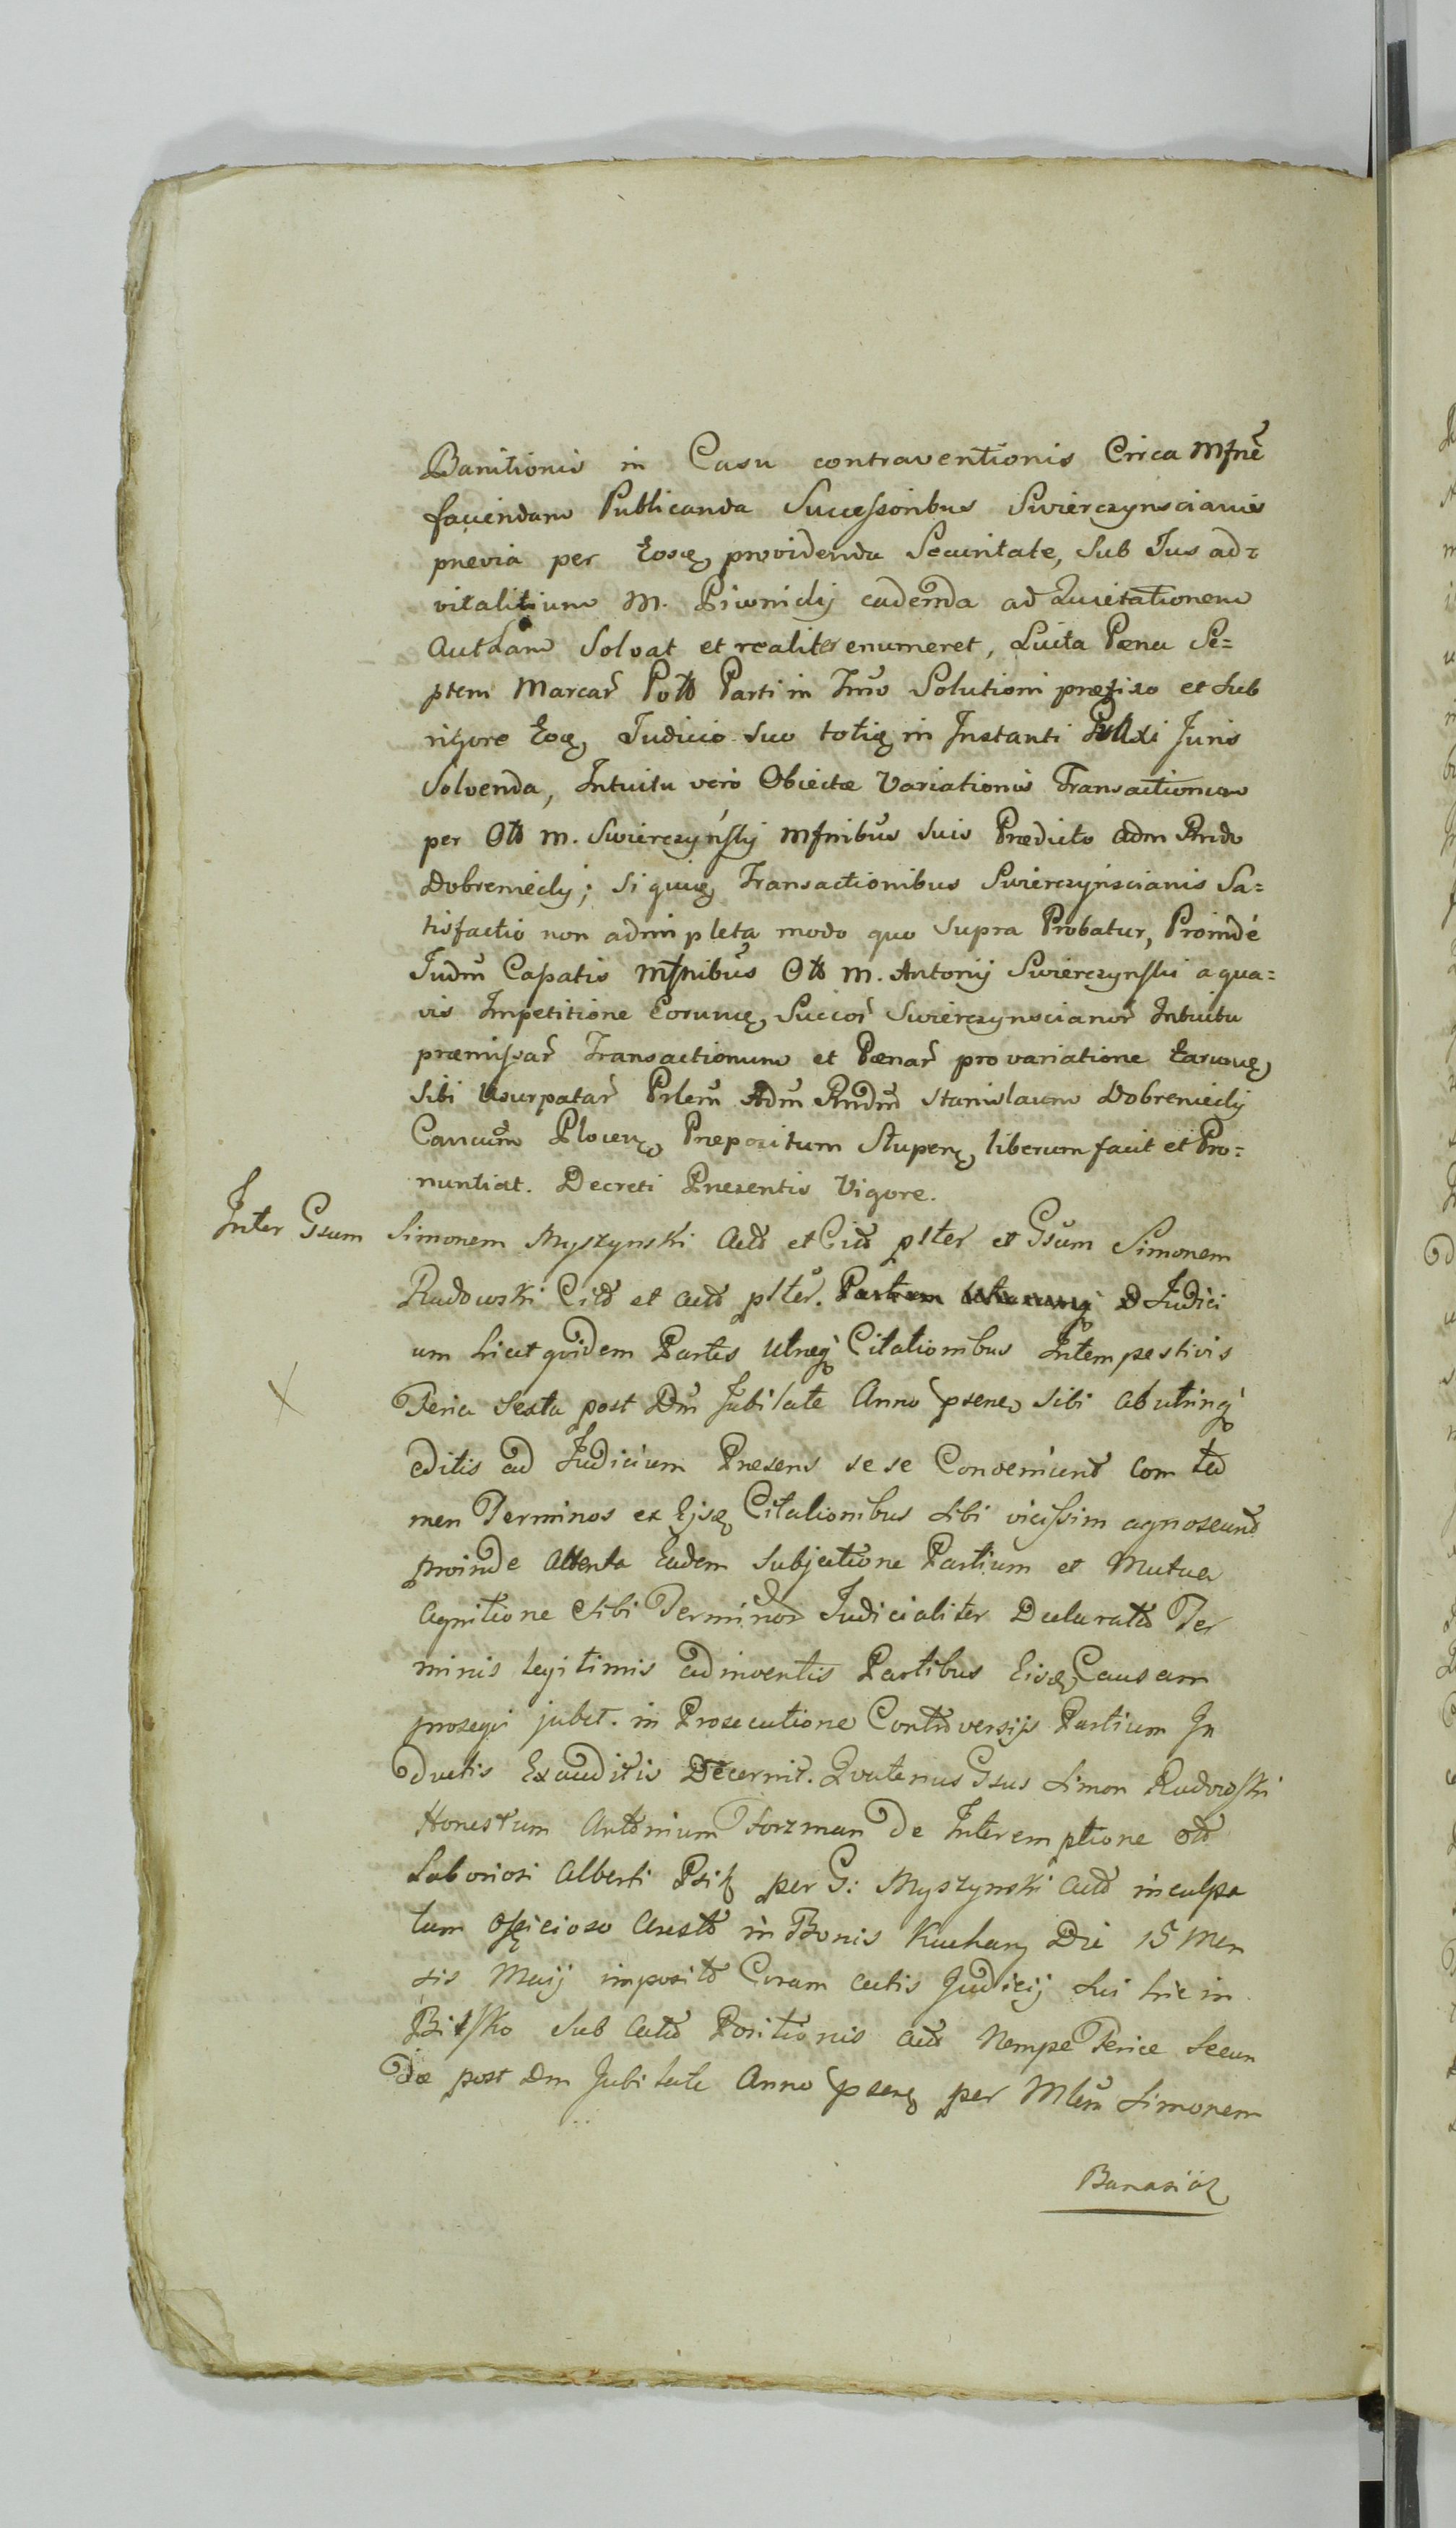 Banitionis in Casu contraventionis Circa Mfnē
faciendam Publicanda Successoribus Swierczynscianis
prævia per Eosq, providenda Securitate, Sub Jus ad=
vitalitium M. Piwnicky cadenda ad Quietationem
Autham Solvat et realiter enumeret, Luita Pœna Se=
ptem Marcar Potb Parti in Tmō Solutioni præfixo et sub
rigore Eoq, Judicio suo totiq, in Instanti Juris
Solvenda, Intuitu vero Obiectæ Variationis Transactionum
per Otb M. Swierczyńsky Mfnibus suis Prædicto Adm Rndo
Dobreniecky; Siquiq, Transactionibus Swierczynscianis Sa=
tisfactio non adimpleta modo quo supra Probatur, Proindé
Judm Capatis Mfnibus Otb M. Antonij Swierczynski a qua=
vis Impetitione Eorumq, Succor Swierczynscianor Intuitu
præmissar Transactionum et Pœnar pro variatione Earumq,
sibi Usurpatar Prlem Adm Rndm Stanislaum Dobreniecky
Cancum Plocen, Præpositum Slupen, liberum facit et Pro=
nuntiat. Decreti Præsentis Vigore.
Inter Gsum Simonem Myszynski Actō et Citō plter et Gsum Simonem
Radowski Citō et actō plter. Judici
um licet quidem Partes Utræq Citationibus Intempestivis
Feria Sexta post Dm Jubilate Anno psen sibi ab utrinq
editis ad Judicium Præsens se se Conveniunt Com ta
men Terminos ex Eisq, Citationibus sibi vicissim agnoscunt
proinde Attenta Eadem Subjectione Partium et Mutua
Agnitione sibi Terminor Judicialiter Declarata Ter
minis legitimis adinventis Partibus Eisq, Causam
proseqi jubet. in Prosecutione Controversijs Partium In
ductis Exauditis Decernit. Quatenus Gsus Simon Radowski
Honestum Antonium Forzman De Interemptione otb
Laboriosi Alberti Psik per G: Myszynski actō inculpa
tum Officioso Arestō in Bonis Kuchary Die 15 Men
sis Maij impositō Coram actis Judicij sui hic in
Bielsko Sub actō Positionis actō Nempe Feriæ Secun
dæ post Dm Jubilate Anno psen per Mlem Simonem
Banasiak